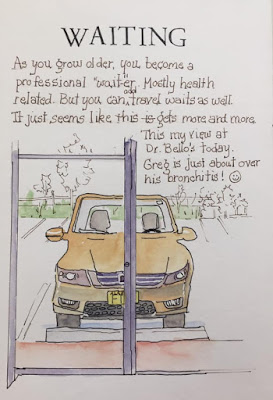 WAITING
As you grow older, you become a
professional "waiter. Mostly health
related. But you can add travel waits as well.
It just seems like this is gets more and more.
This my view at
Dr. Bello's today.
Greg is just about over
his bronchitis! ☺